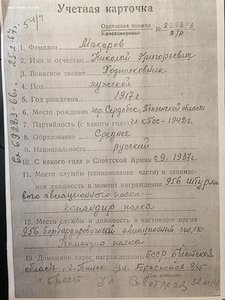 Учетная карточка
Орденская книжка
Удостоверение
1. Фамилия Макаров
2. Имя и отчество Николай Григорьевич
3. Воинское звание Подполковник
4. Пол мужской
5. Год рождения 1917 г.
6. Место рождения гор. Сердобск, Пензенской области
7. Партийность (с какого года) чл. КПСС - 1942 г.
8. Образование Среднее
9. Национальность русский
10. С какого года в Советской Армии с 9. 1937 г.
11. Место службы (наименование части) и занимае-
мая должность в момент награждения 956
вого авиационного полка -
командир полка
12. Место службы и должность в настоящее время
956 бомбардировочный авиационный полк
Командир полка
13. Домашний адрес награжденного БССР Брестской
область, г. Пинск ул. Брестская
г. Брест ул. Советская